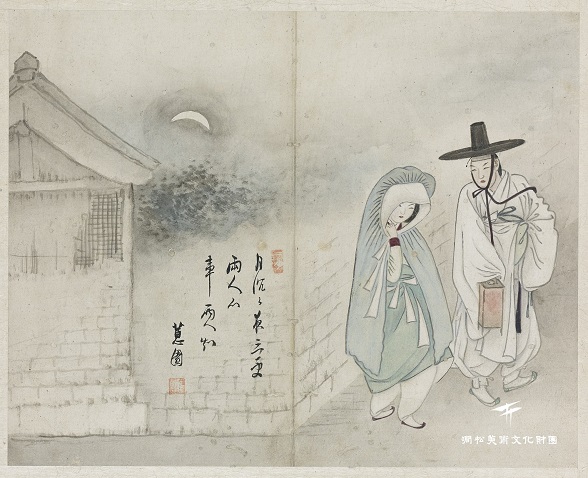 月沉〻夜三更
兩人心
事兩人知
蕙園
澗松美術文化財團